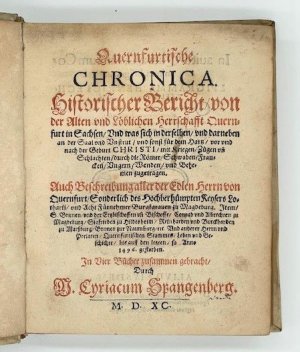 Quernfurtische
CHRONICA.
Historischer Bericht / von
der Alten und Löblichen Herrschafft Quern-
furt in Sachsen / Und was sich in derselben / und darneben
an der Saal und Unstrut / und sonst für dem Hartz / vor und
nach der Geburt CHRISTI / mit Kriegen / Zügen und
Schlachten / durch die Römer / Schwaben / Fran-
cken / Ungern / Wenden / und Behe-
men zugetragen.
Auch Beschreibung aller der Edlen Herrn von
Quernfurt / Sonderlich des Hochberhümpten Keysers Lo-
tharii / und Acht Fürnehmer Burggrauen zu Magdeburg. Item /
S. Brunen / und der Ertzbischoffen und Bischoffen / Conrad und Albrechten zu
Magdeburg / Gisefriden zu Hildesheim /
zu Marsburg / zu Naumburg und Anderer Herrn und
Prelaten / Quernfurtischen Stammes / Leben und Ge-
schichte / bis auff den letzten / so Anno
1496. gestorben.
In Vier Bücher zusammen gebracht /
Durch
M. Cyriacum Spangenberg.
M. D. XC.